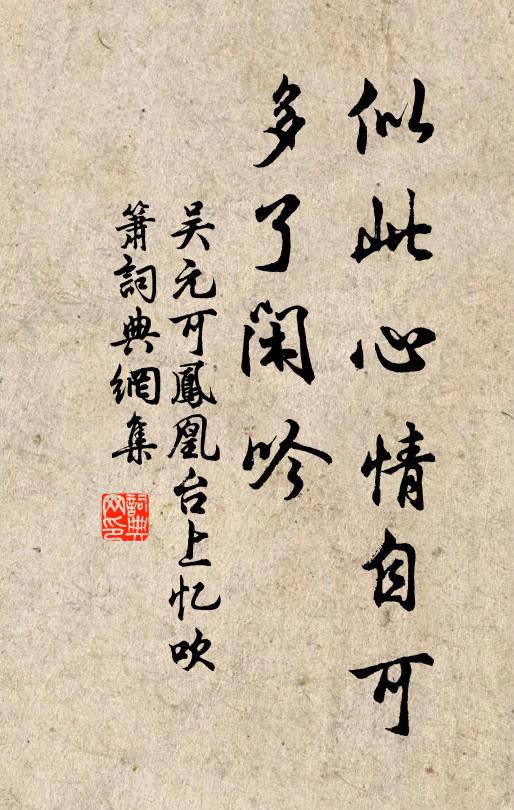 似此心情自可
多了闲吟
吴元可鳳凰台上忆吹
箫詞典網集
詞典
网印